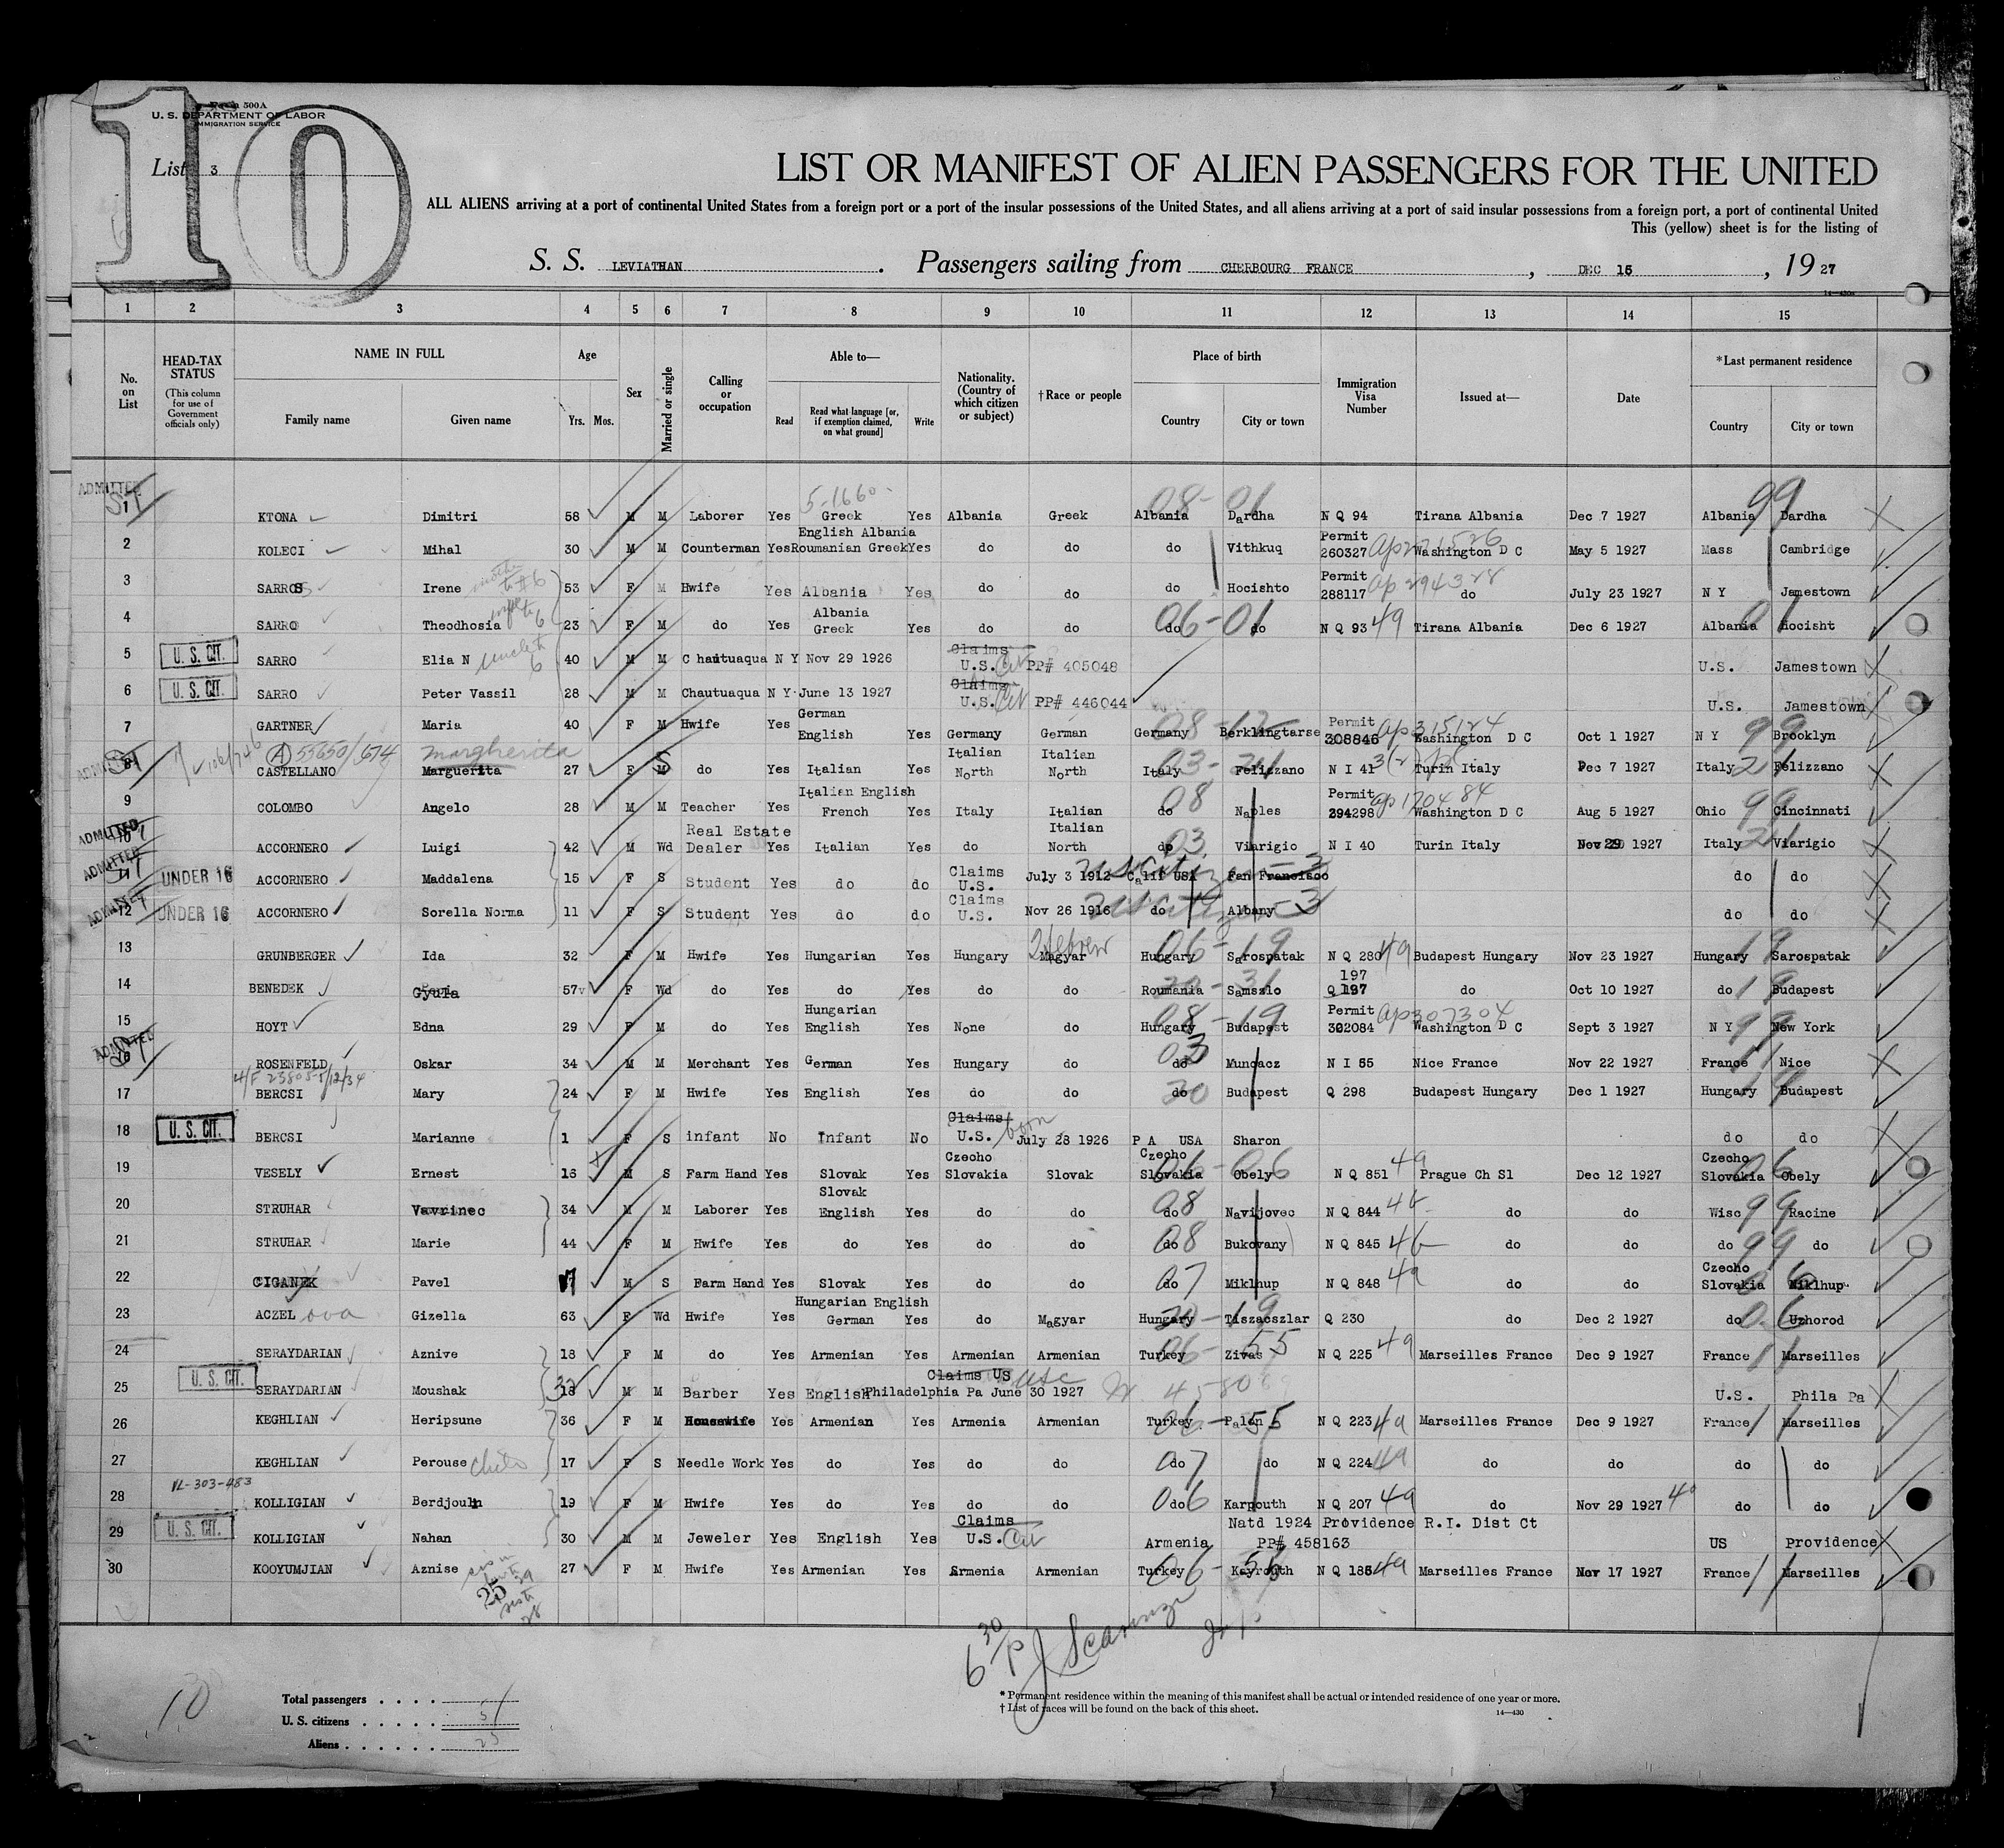 10
Form 500A
U. S. DEPARTMENT OF LABOR
IMMIGRATION SERVICE
List 3
LIST OR MANIFEST OF ALIEN PASSENGERS FOR THE UNITED
ALL ALIENS arriving at a port of continental United States from a foreign port or a port of the insular possessions of the United States, and all aliens arriving at a port of said insular possessions from a foreign port, a port of continental United
This (yellow) sheet is for the listing of
S. S. LEVIATHAN. Passengers sailing from CHERBOURG FRANCE, DEC 15, 19 27
1 2 3 4 5 6 7 8 9 10 11 12 13 14 15
No. on List
HEAD-TAX STATUS (This column for use of Government officials only)
NAME IN FULL Family name Given name
Age Yrs. Mos.
Sex
Married or single
Calling or occupation
Able to— Read Read what language [or, if exemption claimed, on what ground] Write
Nationality. (Country of which citizen or subject)
† Race or people
Place of birth Country City or town
Immigration Visa Number
Issued at—
Date
*Last permanent residence Country City or town
ADMITTED 1 KTONA Dimitri 58 M M Laborer Yes Greek Yes Albania Greek Albania Dardha N Q 94 Tirana Albania Dec 7 1927 Albania Dardha
2 KOLECI Mihal 30 M M Counterman Yes English Albania Roumanian Greek Yes do do do Vithkuq Permit 260327 Washington D C May 5 1927 Mass Cambridge
3 SARROS Irene 53 F M Hwife Yes Albania Yes do do do Hocishto Permit 288117 do July 23 1927 N Y Jamestown
4 SARRO Theodhosia 23 F M do Yes Albania Greek Yes do do do do N Q 93 49 Tirana Albania Dec 6 1927 Albania Hocisht
5 U. S. CIT. SARRO Elia N 40 M M Chautuaqua N Y Nov 29 1926 Claims U.S. Cit PP# 405048 U.S. Jamestown
6 U. S. CIT. SARRO Peter Vassil 28 M M Chautuaqua N Y June 13 1927 Claims U.S. Cit PP# 446044 U.S. Jamestown
7 GARTNER Maria 40 F M Hwife Yes German English Yes Germany German Germany Berklingtarse Permit 308846 Washington D C Oct 1 1927 N Y Brooklyn
ADMITTED 8 A 55650/674 CASTELLANO Margherita Marguerita 27 F S do Yes Italian Yes Italian North Italian North Italy Felizzano N I 41 Turin Italy Dec 7 1927 Italy Felizzano
9 COLOMBO Angelo 28 M M Teacher Yes Italian English French Yes Italy Italian do Naples Permit 294298 Washington D C Aug 5 1927 Ohio Cincinnati
ADMITTED 10 ACCORNERO Luigi 42 M Wd Real Estate Dealer Yes Italian Yes do Italian North do Viarigio N I 40 Turin Italy Nov 29 1927 Italy Viarigio
ADMITTED 11 UNDER 16 ACCORNERO Maddalena 15 F S Student Yes do do Claims U.S. July 3 1912 Calif USA San Francisco do do
ADMITTED 12 UNDER 16 ACCORNERO Sorella Norma 11 F S Student Yes do do Claims U.S. Nov 26 1916 do Albany do do
13 GRUNBERGER Ida 32 F M Hwife Yes Hungarian Yes Hungary Hebrew Magyar Hungary Sarospatak N Q 280 49 Budapest Hungary Nov 23 1927 Hungary Sarospatak
14 BENEDEK Gyula 57 F Wd do Yes do Yes do do Roumania Samszlo 197 Q 197 do Oct 10 1927 do Budapest
15 HOYT Edna 29 F M do Yes Hungarian English Yes None do Hungary Budapest Permit 302084 Ap 307304 Washington D C Sept 3 1927 N Y New York
ADMITTED 16 ROSENFELD Oskar 34 M M Merchant Yes German Yes Hungary do do Muncacz N I 55 Nice France Nov 22 1927 France Nice
17 BERCSI Mary 24 F M Hwife Yes English Yes do do do Budapest Q 298 Budapest Hungary Dec 1 1927 Hungary Budapest
18 U. S. CIT. BERCSI Marianne 1 F S infant No Infant No Claims U.S. born July 28 1926 P A USA Sharon do do
19 VESELY Ernest 16 M S Farm Hand Yes Slovak Yes Czecho Slovakia Slovak Czecho Slovakia Obely N Q 851 49 Prague Ch Sl Dec 12 1927 Czecho Slovakia Obely
20 STRUHAR Vavrinec 34 M M Laborer Yes Slovak English Yes do do do Navijovec N Q 844 do do Wisc Racine
21 STRUHAR Marie 44 F M Hwife Yes do Yes do do do Bukovany N Q 845 do do do do
22 CIGANEK Pavel 17 M S Farm Hand Yes Slovak Yes do do do Miklhup N Q 848 49 do do Czecho Slovakia Miklhup
23 ACZEL ova Gizella 63 F Wd Hwife Yes Hungarian English German Yes do Magyar Hungary Tiszacszlar Q 230 do Dec 2 1927 do Uzhorod
24 SERAYDARIAN Aznive 18 F M do Yes Armenian Yes Armenian Armenian Turkey Zivas N Q 225 49 Marseilles France Dec 9 1927 France Marseilles
25 U. S. CIT. SERAYDARIAN Moushak M M Barber Yes English Claims US USC Philadelphia Pa June 30 1927 U.S. Phila Pa
26 KEGHLIAN Heripsune 36 F M Housewife Yes Armenian Yes Armenia Armenian Turkey Palen N Q 223 49 Marseilles France Dec 9 1927 France Marseilles
27 KEGHLIAN Perouse 17 F S Needle Work Yes do Yes do do do do N Q 224 49 do do do do
28 KOLLIGIAN Berdjouin 19 F M Hwife Yes do Yes do do do Karpouth N Q 207 49 do Nov 29 1927 do do
29 U. S. CIT. KOLLIGIAN Nahan 30 M M Jeweler Yes English Yes Claims U.S. Cit Armenia Natd 1924 Providence R.I. Dist Ct PP# 458163 US Providence
30 KOOYUMJIAN Aznise 27 F M Hwife Yes Armenian Yes Armenia Armenian Turkey Kayrouth N Q 185 49 Marseilles France Nov 17 1927 France Marseilles
6 30/P
10
Total passengers . . . .
U. S. citizens . . . . . 5
Aliens . . . . . . 25
* Permanent residence within the meaning of this manifest shall be actual or intended residence of one year or more.
† List of races will be found on the back of this sheet.
14—430